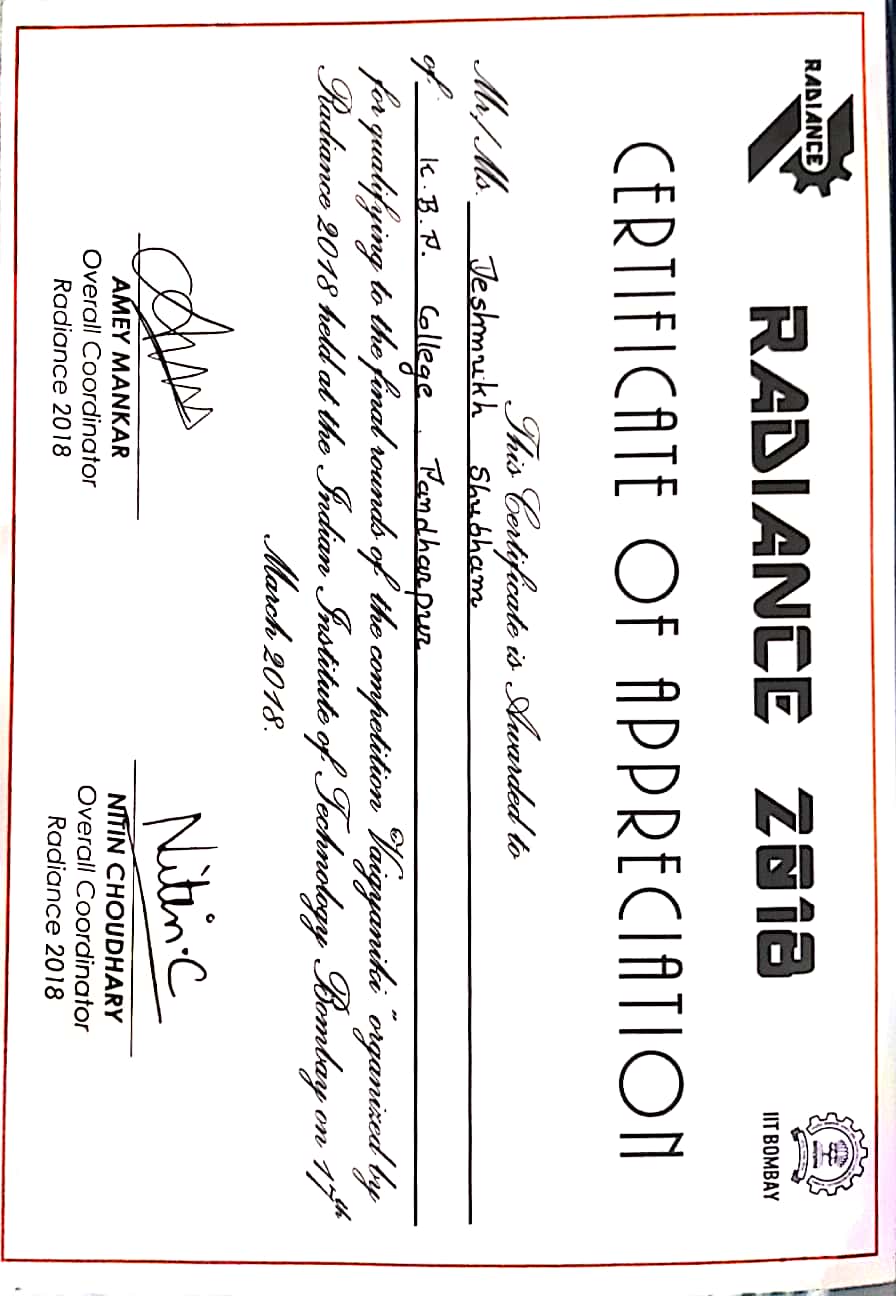 RADIANCE
RADIANCE 2018
IIT BOMBAY
CERTIFICATE OF APPRECIATION
This Certificate is Awarded to
Mr/Ms. Deshmukh Shubham
of K.B.P. College, Pandharpur
for qualifying to the final rounds of the competition "Vaigyaniki "organized by
Radiance 2018 held at the Indian Institute of Technology Bombay on 17th
March 2018.
Nitin.C
AMEY MANKAR
Overall Coordinator
Radiance 2018
NITIN CHOUDHARY
Overall Coordinator
Radiance 2018